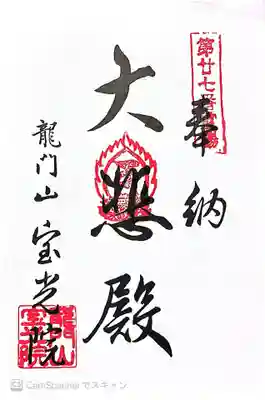 第廿七番霊場
奉納
大悲殿
龍門山
宝光院
CamScanner でスキャン